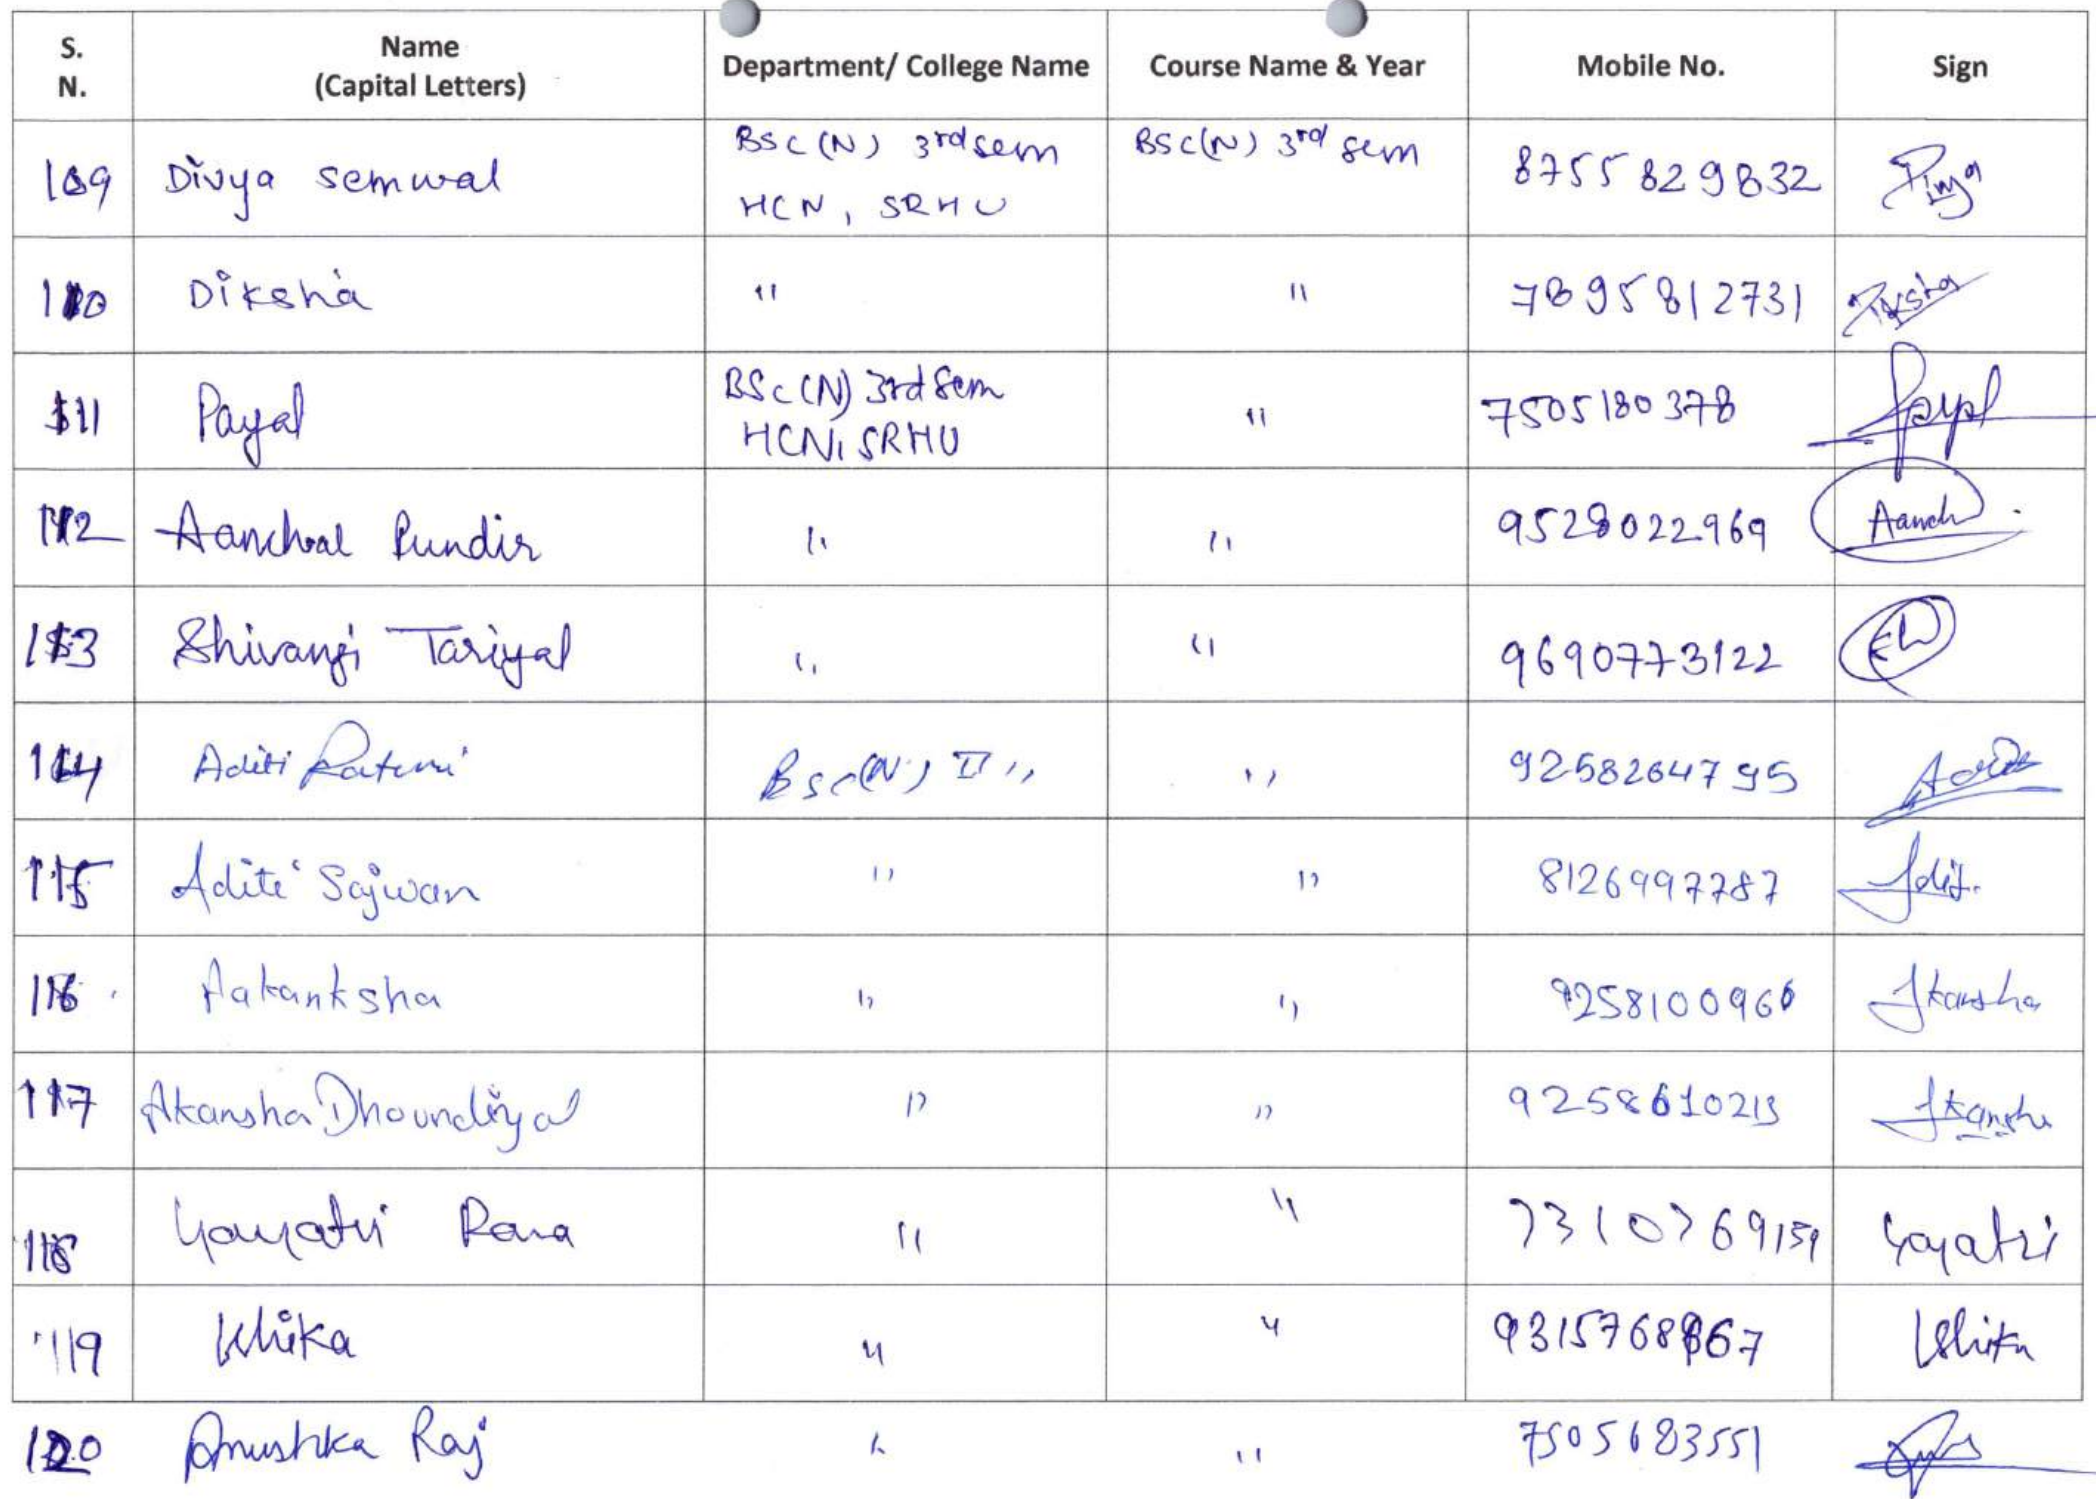 S. N. Name (Capital Letters) Department/ College Name Course Name & Year Mobile No. Sign
109 Divya semwal BSC (N) 3rd sem HCN, SRHU BSC(N) 3rd sem 8755829832 Divya
110 Diksha " " 7895812731 Diksha
111 Payal BSc (N) 3rd Sem HCN, SRHU " 7505180378 Payal
112 Aanchal Pundir " " 9528022969 Aanch
113 Shivangi Tariyal " " 9690773122
114 Aditi Raturi BSc(N) II " " 9258264795
115 Aditi Sajwan " " 8126997787 Adit.
116 Aakanksha " " 9258100966 Akansha
117 Akansha Dhoundiyal " " 9258610213 Akansha
118 Gayatri Rana " " 7310769159 Gayatri
119 Ishika " " 9315768867 Ishika
120 Anushka Raj " " 7505683551